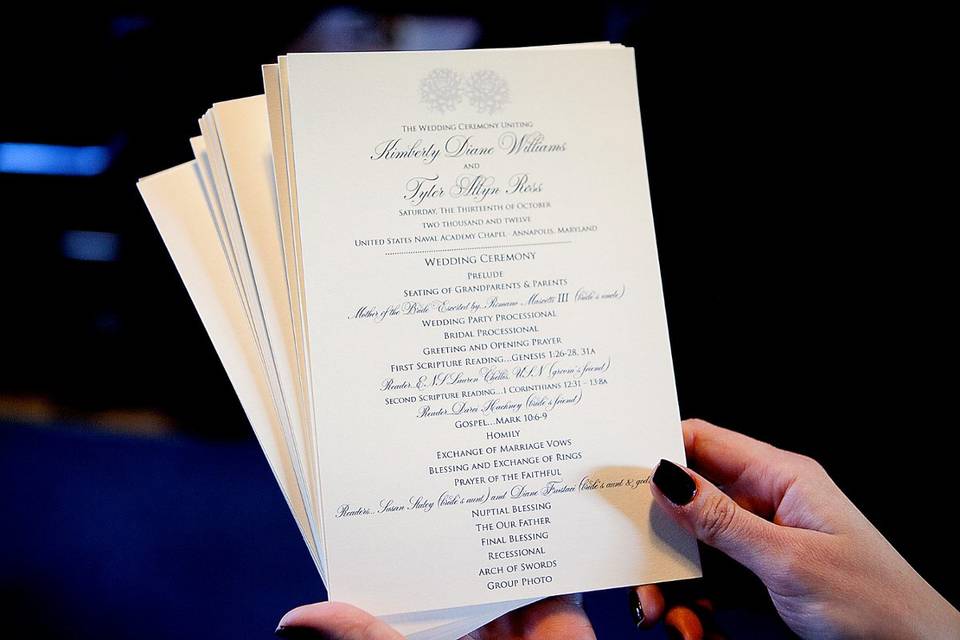 The Wedding Ceremony Uniting
Kimberly Diane Williams
and
Tyler Allyn Ross
Saturday, The Thirteenth of October
two thousand and twelve
United States Naval Academy Chapel - Annapolis, Maryland
Wedding Ceremony
Prelude
Seating of Grandparents & Parents
Mother of the Bride Escorted by...Romano Mascetti III (bride's uncle)
Wedding Party Processional
Bridal Processional
Greeting and Opening Prayer
First Scripture Reading...Genesis 1:26-28, 31a
Reader...ENS Lauren Chellis, USN (groom's friend)
Second Scripture Reading...1 Corinthians 12:31 - 13:8a
Reader...Darci Hackney (bride's friend)
Gospel...Mark 10:6-9
Homily
Exchange of Marriage Vows
Blessing and Exchange of Rings
Prayer of the Faithful
Readers... Susan (bride's aunt) and Diane (bride's aunt &
Nuptial Blessing
The Our Father
Final Blessing
Recessional
Arch of Swords
Group Photo